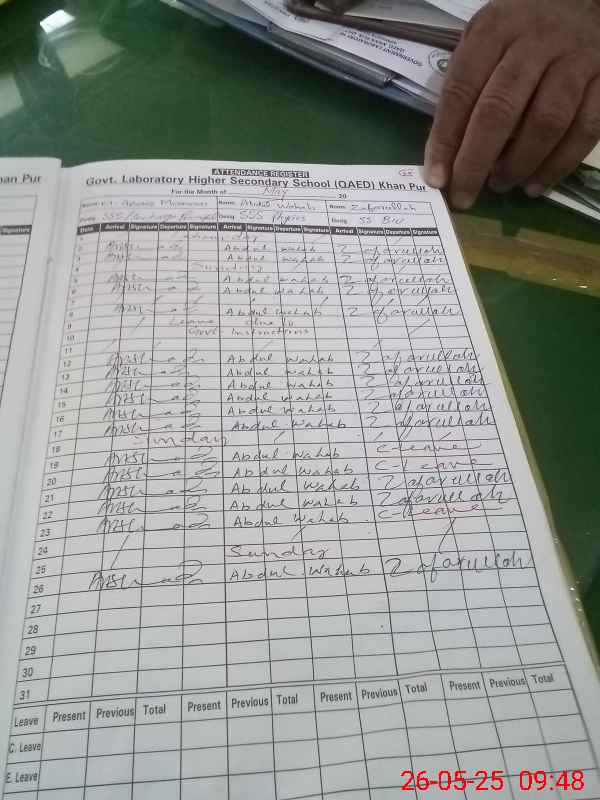 GOVERNMENT LABORATORY
han Pur
ATTENDANCE REGISTER
25
Govt. Laboratory Higher Secondary School (QAED) Khan Pur
For the Month of May 20
Name Name Abdul Wahab Name Zafarullah
Desig Desig SSS Physics Desig SS Bio
Signature Date Arrival Signature Departure Signature Arrival Signature Departure Signature Arrival Signature Departure Signature
1
2 Arshad Abdul Wahab Zafarullah
3 Arshad Abdul Wahab Zafarullah
4 Sunday
5 Arshad Abdul Wahab Zafarullah
6 Arshad Abdul Wahab Zafarullah
7
8 Arshad Abdul Wahab Zafarullah
9 Leave due to
10 Govt. Instructions
11
12 Arshad Abdul Wahab Zafarullah
13 Arshad Abdul Wahab Zafarullah
14 Arshad Abdul Wahab Zafarullah
15 Arshad Abdul Wahab Zafarullah
16 Arshad Abdul Wahab Zafarullah
17 Arshad Abdul Wahab Zafarullah
18 Sunday
19 Arshad Abdul Wahab C-Leave
20 Arshad Abdul Wahab C-Leave
21 Arshad Abdul Wahab Zafarullah
22 Arshad Abdul Wahab Zafarullah
23 Arshad Abdul Wahab C-Leave
24
25 Sunday
26 Arshad Abdul Wahab Zafarullah
27
28
29
30
31
Leave Present Previous Total Present Previous Total Present Previous Total Present Previous Total
C. Leave
E. Leave
26-05-25 09:48